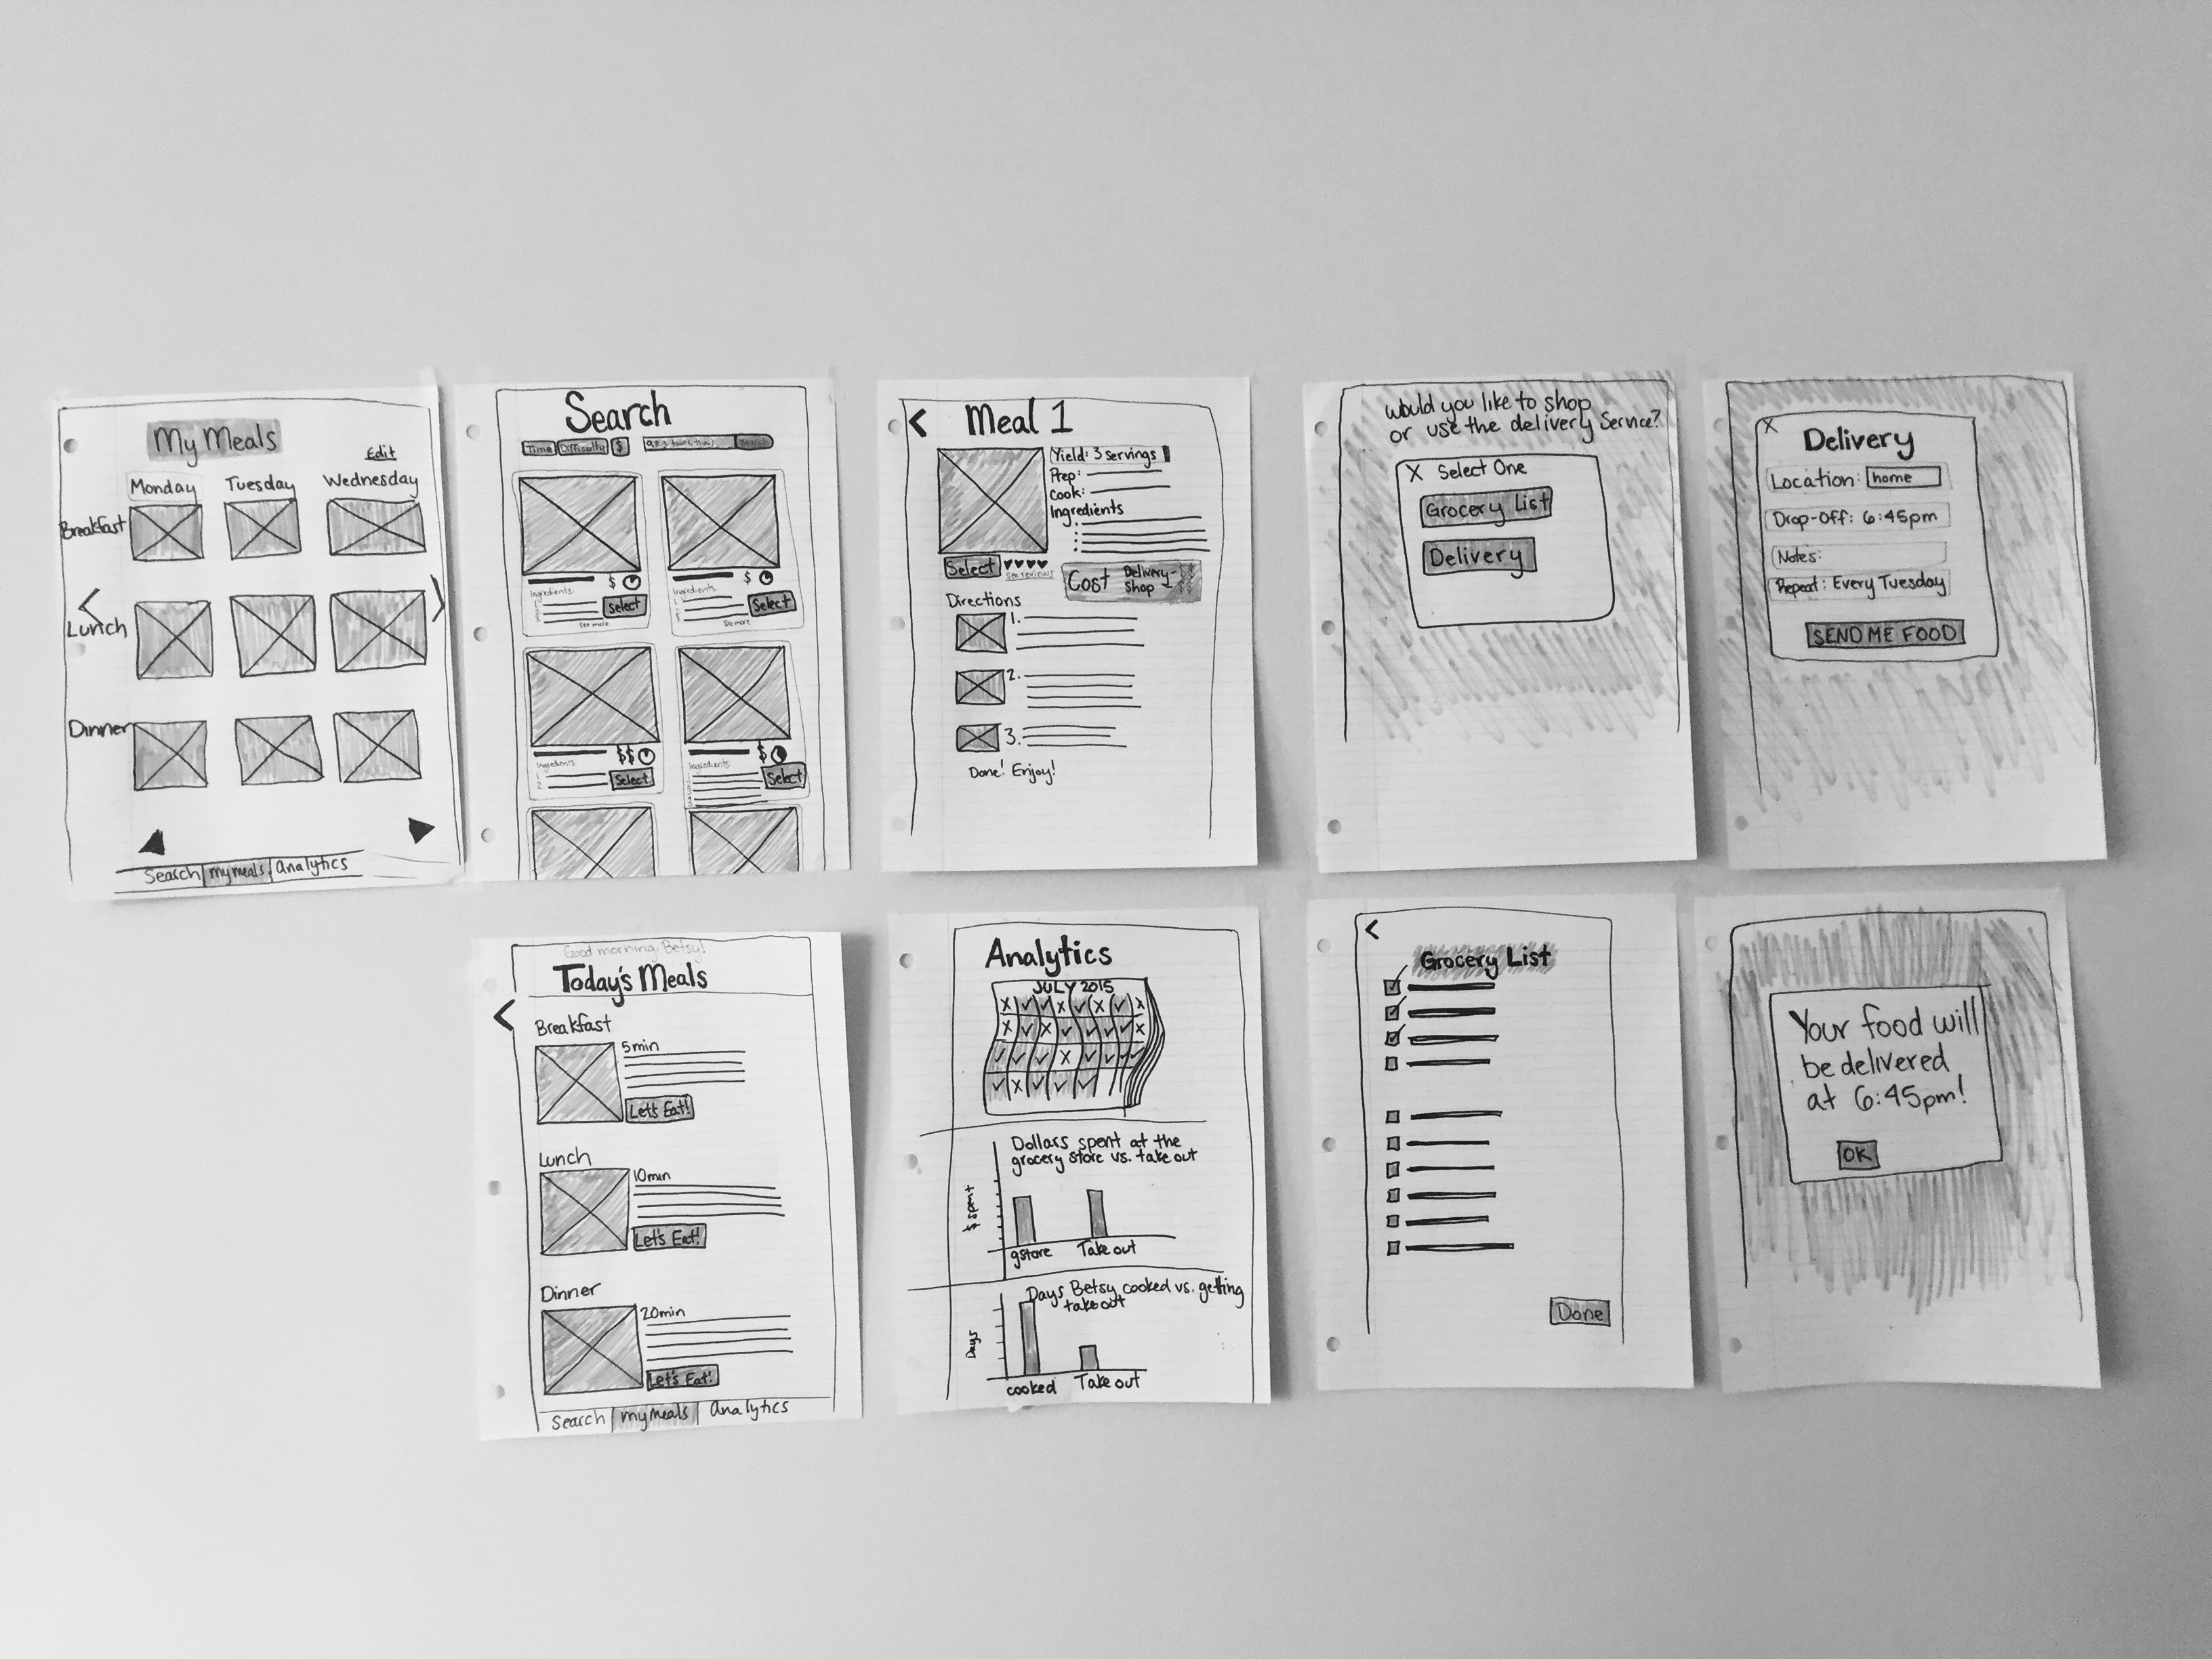 My Meals
Edit
Monday Tuesday Wednesday
Breakfast
Lunch
Dinner
Search mymeals analytics
Search
Time Difficulty $
$
Ingredients:
1
2
3
Select
See more
$
Ingredients:
1
2
3
Select
See more
$$
Ingredients
1
2
Select
$
Ingredients
Select
Meal 1
Yield: 3 servings
Prep:
Cook:
Ingredients
Select
See reviews
Cost Delivery- $$
Shop - $$
Directions
1.
2.
3.
Done! Enjoy!
Would you like to shop
or use the delivery Service?
X Select One
Grocery List
Delivery
X
Delivery
Location: home
Drop-Off: 6:45pm
Notes:
Repeat: Every Tuesday
SEND ME FOOD
Good morning, Betsy!
Today's Meals
Breakfast
5min
Let's Eat!
Lunch
10min
Let's Eat!
Dinner
20min
Let's Eat!
Search mymeals analytics
Analytics
JULY 2015
Dollars spent at the
grocery store vs. take out
$ spent
gstore Take out
Days Betsy cooked vs. getting
takeout
Days
cooked Take out
Grocery List
Done
Your food will
be delivered
at 6:45pm!
OK